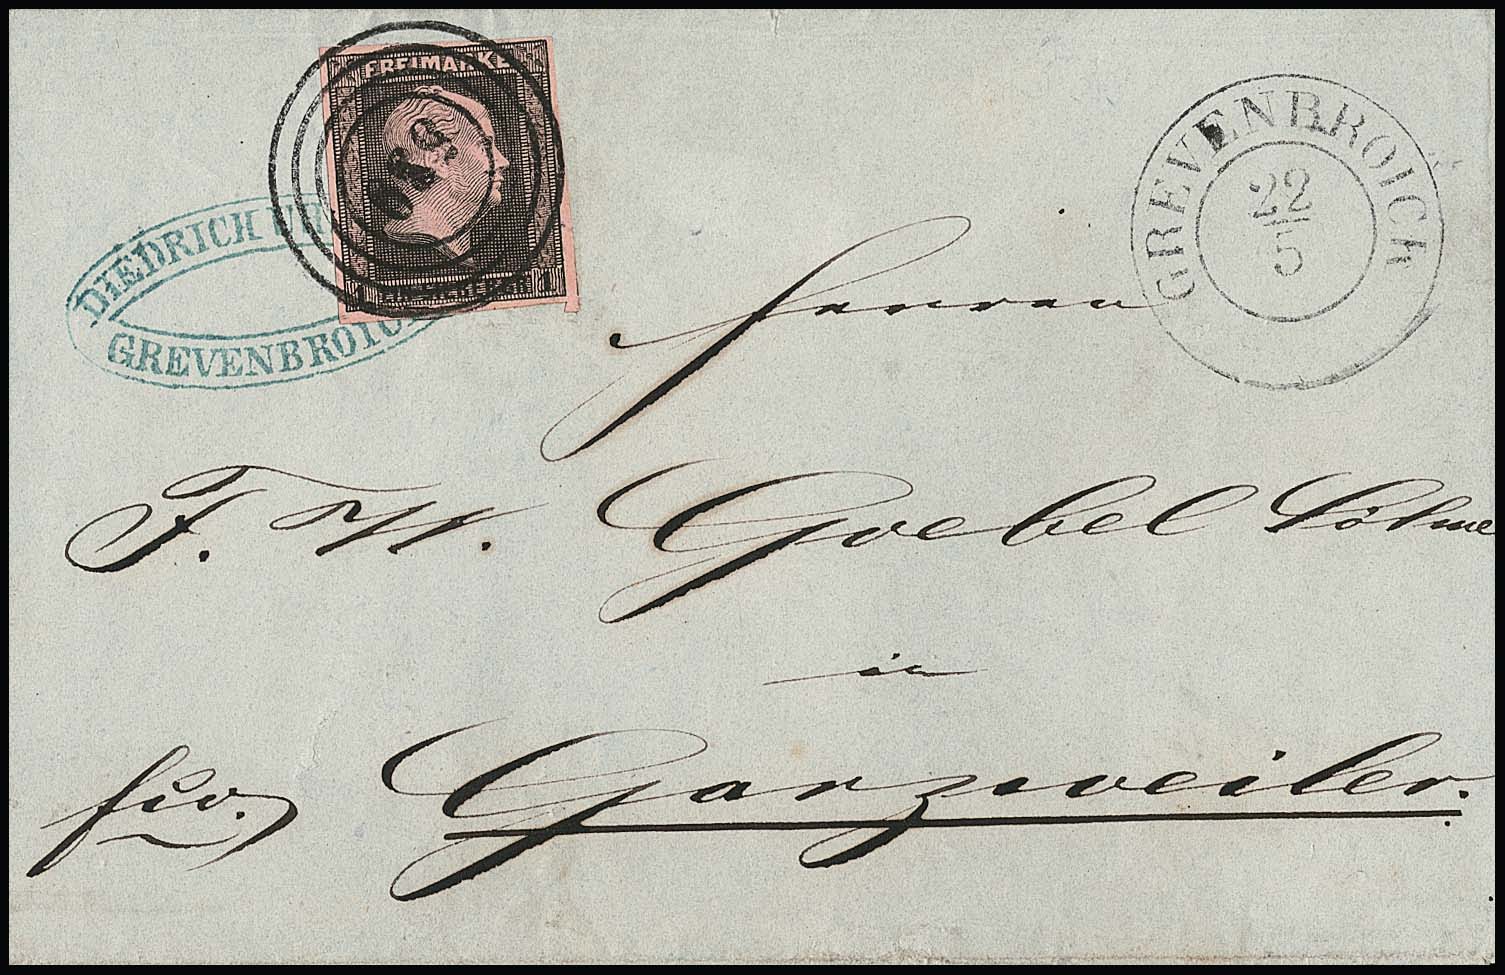 FREIMARKE
1 EIN SILBERGR. 1
DIEDRICH
GREVENBROICH
GREVENBROICH
22
5
Herren
F. W. Goebel Söhne
in
fro. Garzweiler.